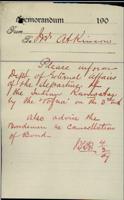 Memorandum 190
From
To Mr Atkinson
Please inform
Dept of External Affairs
of the departure of
the Indian
by the on the 2nd
Also advise the
Bondsmen re Cancellation
of Bond.